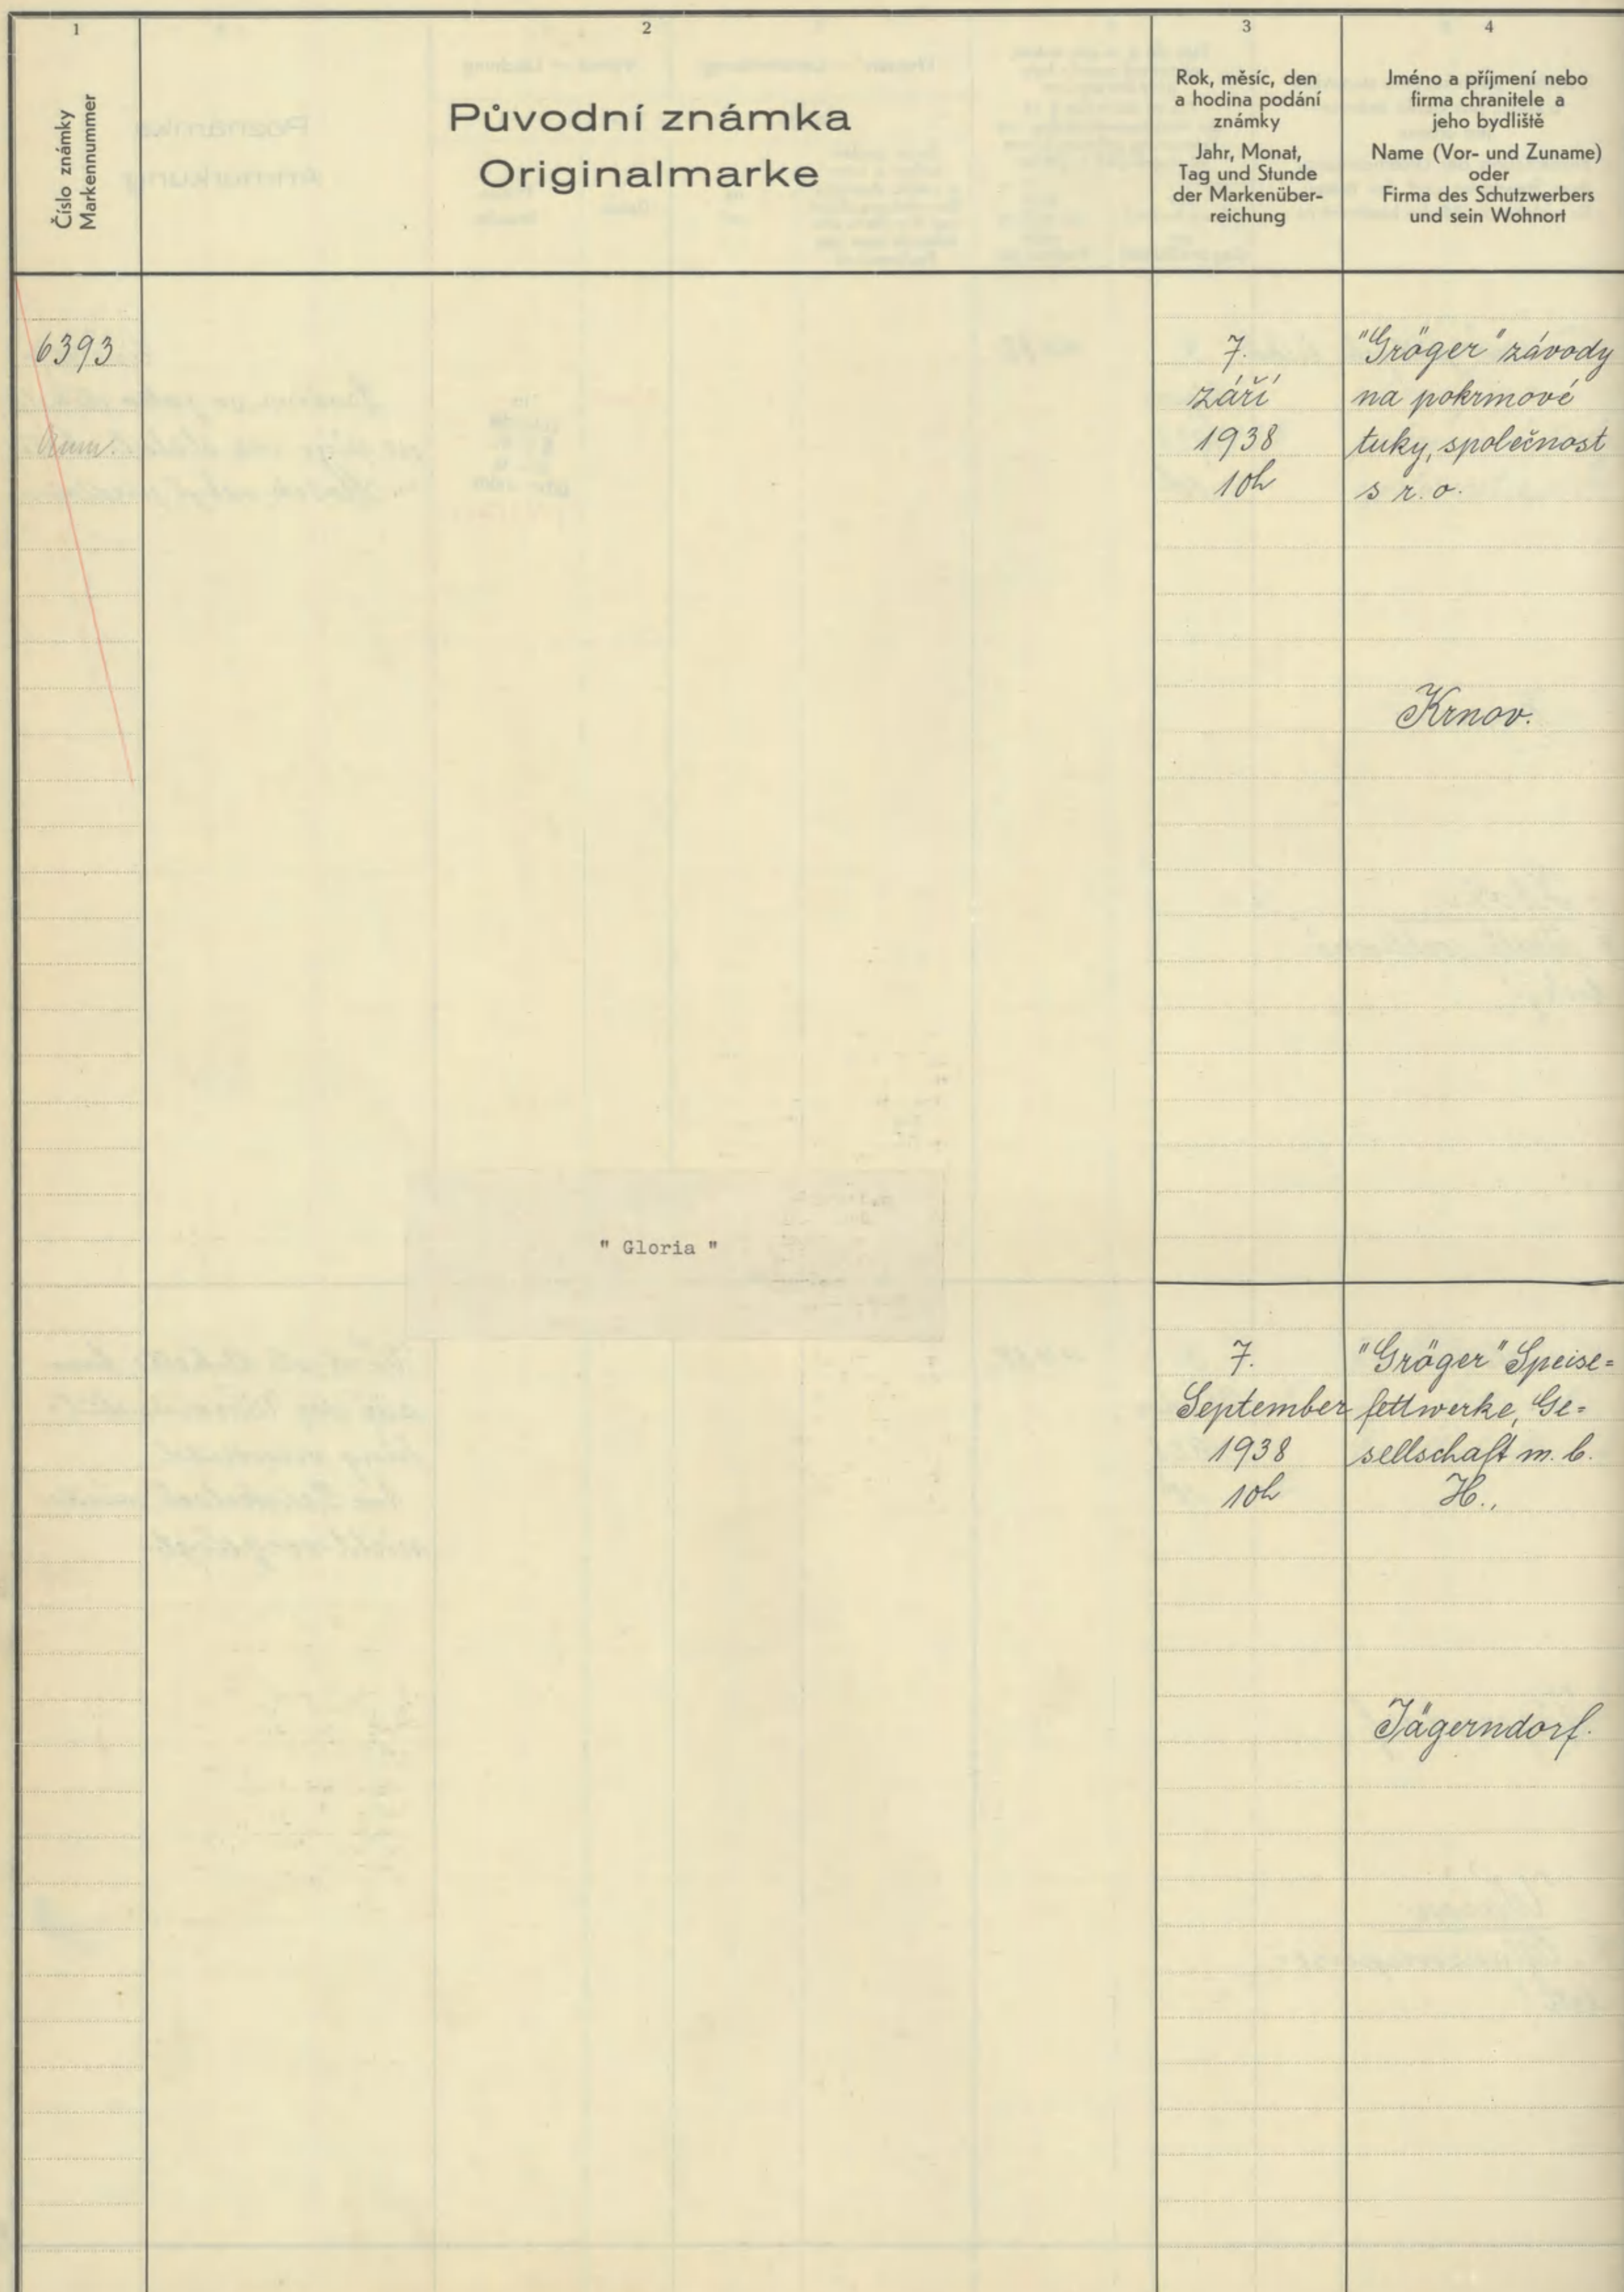 1
2
3
4
Číslo známky
Markennummer
Původní známka
Originalmarke
Rok, měsíc, den
a hodina podání
známky
Jahr, Monat,
Tag und Stunde
der Markenüber-
reichung
Jméno a příjmení nebo
firma chranitele a
jeho bydliště
Name (Vor- und Zuname)
oder
Firma des Schutzwerbers
und sein Wohnort
6393
7.
září
1938
10h
"Gröger" závody
na pokrmové
tuky, společnost
s r. o.
Krnov.
" Gloria "
7.
September
1938
10h
"Gröger" Speise=
fettwerke, Ge=
sellschaft m. b.
H.,
Jägerndorf.